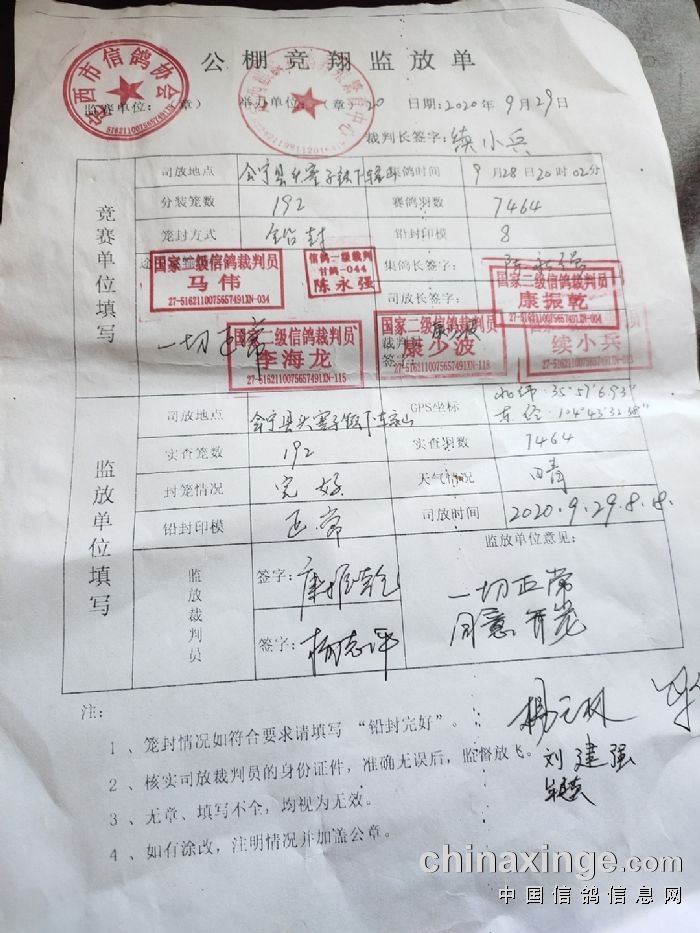 公棚竞翔监放单
西市信鸽协会
5162110075657491XN
监赛单位: 章)
举办单位: (章) 20
日期: 2020年9月29日
裁判长签字: 续小兵
竞赛单位填写
司放地点
集鸽时间 9月28日20时02分
分装笼数 192
赛鸽羽数 7464
笼封方式 铅封
铅封印模 8
集鸽长签字:
司放长签字:
国家二级信鸽裁判员
马伟
27-5162110075657491XN-034
信鸽一级裁判
甘鸽-044
陈永强
国家二级信鸽裁判员
康振乾
一切正常
国家二级信鸽裁判员
李海龙
27-5162110075657491XN-115
国家二级信鸽裁判员
康少波
27-5162110075657491XN-118
续小兵
监放单位填写
司放地点
GPS坐标 北纬·35°57′6.93″
东经·104°43′32.38″
实查笼数 192
实查羽数 7464
封笼情况 完好
天气情况 晴
铅封印模 正常
司放时间 2020.9.29.8.8.
监放裁判员
签字: 康振乾
签字:
监放单位意见:
一切正常
同意开笼
注:
1、笼封情况如符合要求请填写“铅封完好”。
2、核实司放裁判员的身份证件,准确无误后,监督放飞。
刘建强
3、无章、填写不全,均视为无效。
4、如有涂改,注明情况并加盖公章。
chinaxinge.com
中国信鸽信息网